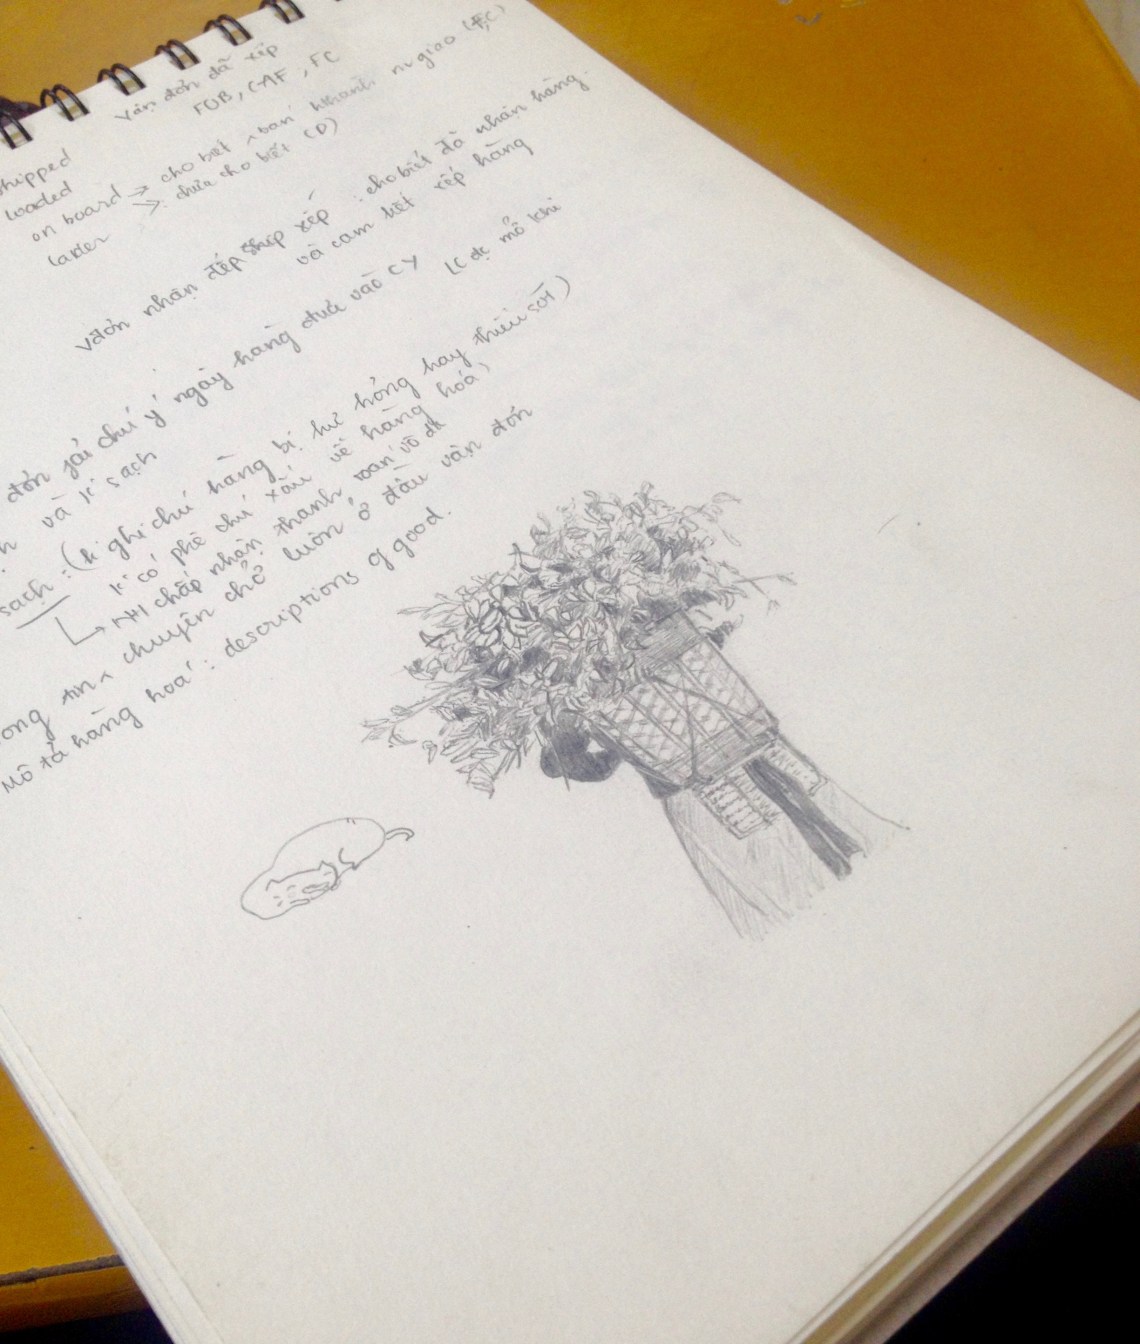 vận đơn đã xếp
FOB, CAF, FC
shipped
loaded
on board → cho biết bán thành n giao (F,C)
laden → chưa cho biết (D)
vđơn nhận xếp : cho biết đã nhận hàng.
và cam kết xếp hàng
đơn fải chú ý ngày hàng đưa vào CY LC đc mở khi
và k sạch
sạch : (k ghi chú hàng bị hư hỏng hay thiếu sót)
k có phê chú xấu về hàng hóa)
↳ NH chấp nhận thanh toán vô đk
tin chuyên chở luôn ở đầu vận đơn
Mô tả hàng hoá : descriptions of good.